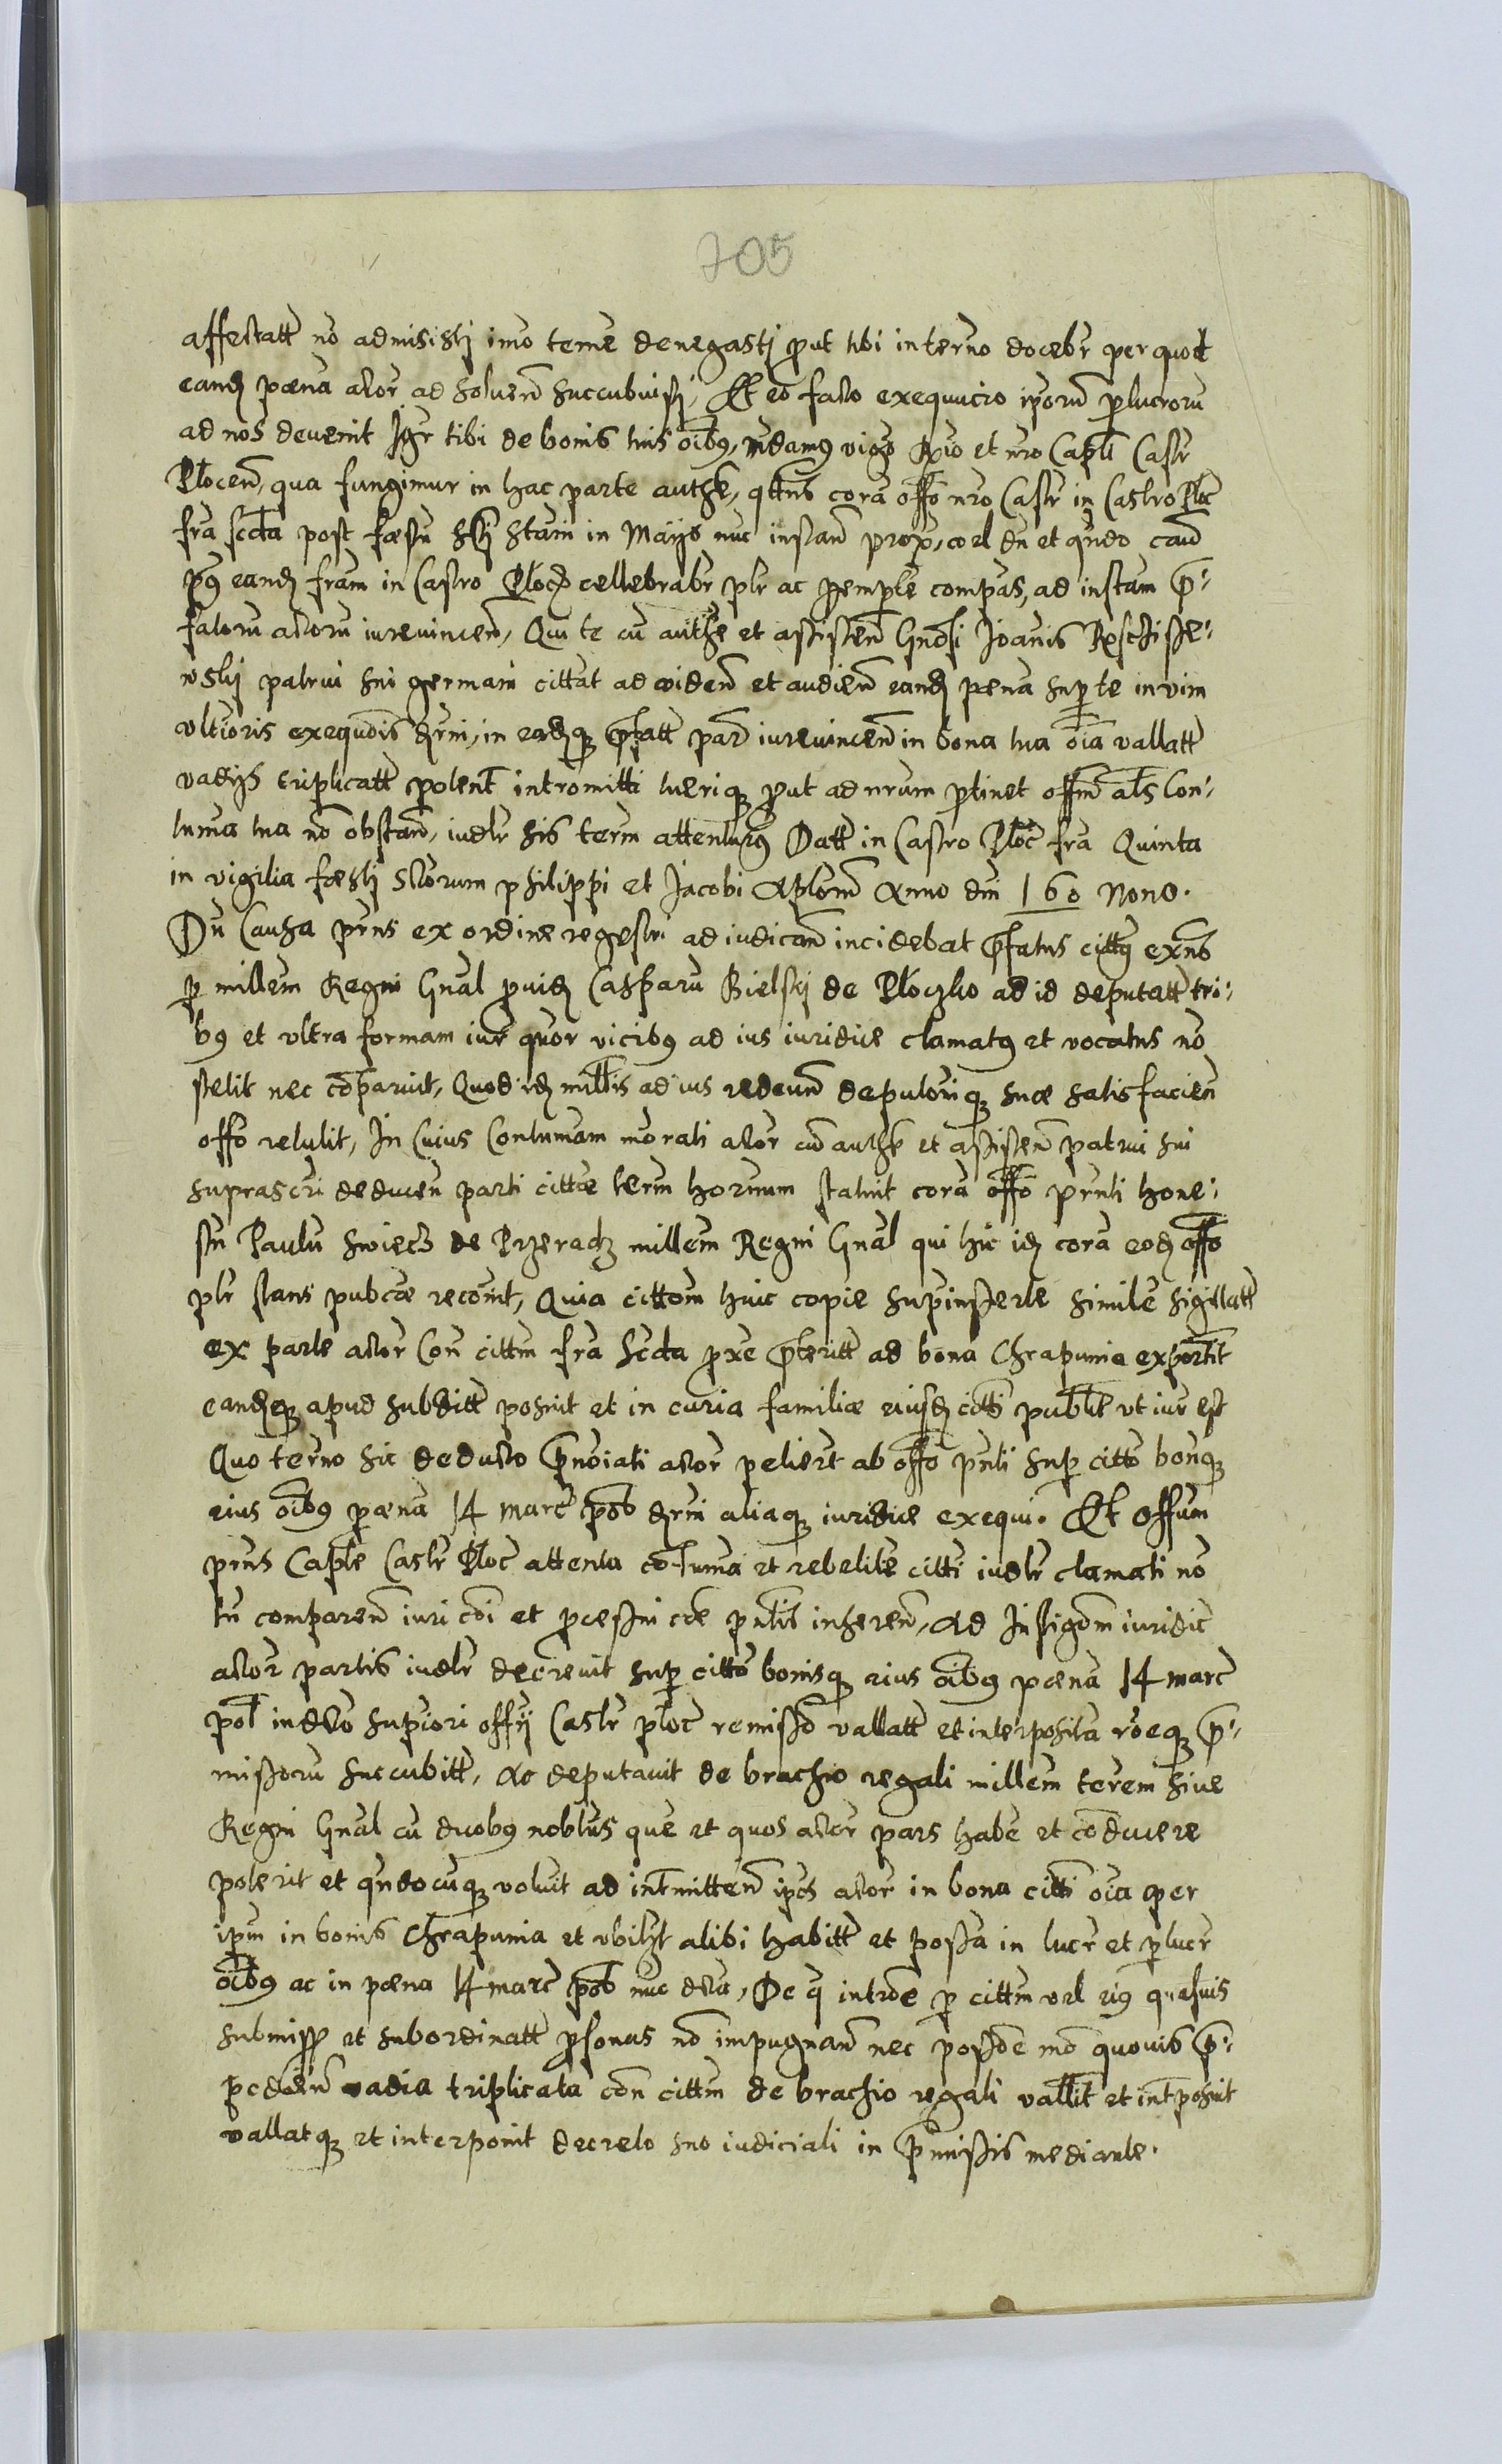 705
affectatt no admisisti imo teme denegasti put tibi in termo docebr per quod
eand pæna ador ad soluen succubuisti, Et eo facto exequucio iporu plucroru
ad nos devenit Igr tibi de bonis tuis oibq, mdamq vigo Rgio et nro Capli Castr
Plocen, qua fungimur in hac parte authe, qttns cora offo nro Castr in Castro Ploc
fra scda post fæstu Sti Stani in Mayo nuc instan prox, vel du et qndo caus
pq eand fram in Castro Ploc cellebrabr plr ac pempte compas, ad instam p-
fatoru actoru iurevincen, Qui te cu authe et assisten Gnosi Joanis
wskj patrui sui germani cittat ad viden et audien eand pæna sup te in vim
ulterioris exequois in eadq pfatt par iurevincen in bona tua oia vallatt
vadys triplicatt potent intromitti tueriq put ad nrum ptinet offm als Con-
tuma tua no obstan, iudlr his term attenturq Datt in Castro Ploc fra Quinta
in vigilia fæsti Sctorum Philippi et Jacobi Aplorm Anno dm 160 nono.
Du Causa prns ex ordine regestri ad iudican incidebat pfatus cittq exns
p millem Regni Gnal prvid Casparu Bielski de Ploczko ad id deputatt tri-
bq et ultra formam iur quor vicibq ad ius iuridice clamatq et vocatus no
stetit nec coparuit, Quod id millis ad ius redeun deputoniq suæ satisfacien
offo retulit, In Cuius Contumam morati actor cu authe et assisten patrui sui
suprascri deducen parti cittæ term hornum statuit cora offo prnti hone-
stu Paulu Swiech de Przeradz millem Regni Gnal qui hic id cora eod offo
plr stans pubcæ recovit, Quia cittom huic copie supinserte simile sigillatt
ex parte actor Con cittm fra Scda pxe pteritt ad bona Chrapunia exportit
eandq apud subditt posuit et in curia familiæ eiusd citti publit ut iur est
Quo termo sic deducto pnoiati actor petiert ab offo pnti sup citto bonq
eius oibq pæna 14 marc pol aliaq iuridice exequi. Et Offum
prns Caple Castr Ploc attenta cotuma et rebelile citti iudlr clamati no
tn comparen iuri coi et pcessui cæ pntis inheren, Ad Instigom iuridic
actor partis iudlr decrevit sup citto bonisq eius oibq pæna 14 marc
pol in dcto supiori offy Castr Ploc remisso vallatt et interposita roeq p-
missoru succubitt, Ac deputavit de brachio regali millem terem sive
Regni Gnal cu duobq noblus que et quos actor pars habe et coducere
poterit et qndocuq voluit ad intmitten ipos actor in bona citti oia per
ipm in bonis Chrapunia et ubilt alibi habitt et possa in lucr et plucr
oibq ac in pæna 14 marc pol nuc dcta, De q introe p cittm vel eiq quasuis
submiss et subordinatt psonas no impugnan nec possoe mo quovis p-
pedien vadia triplicata con cittm de brachio regali vallit et intposuit
vallatq et interponit decreto suo iudiciali in pmissis mediante.